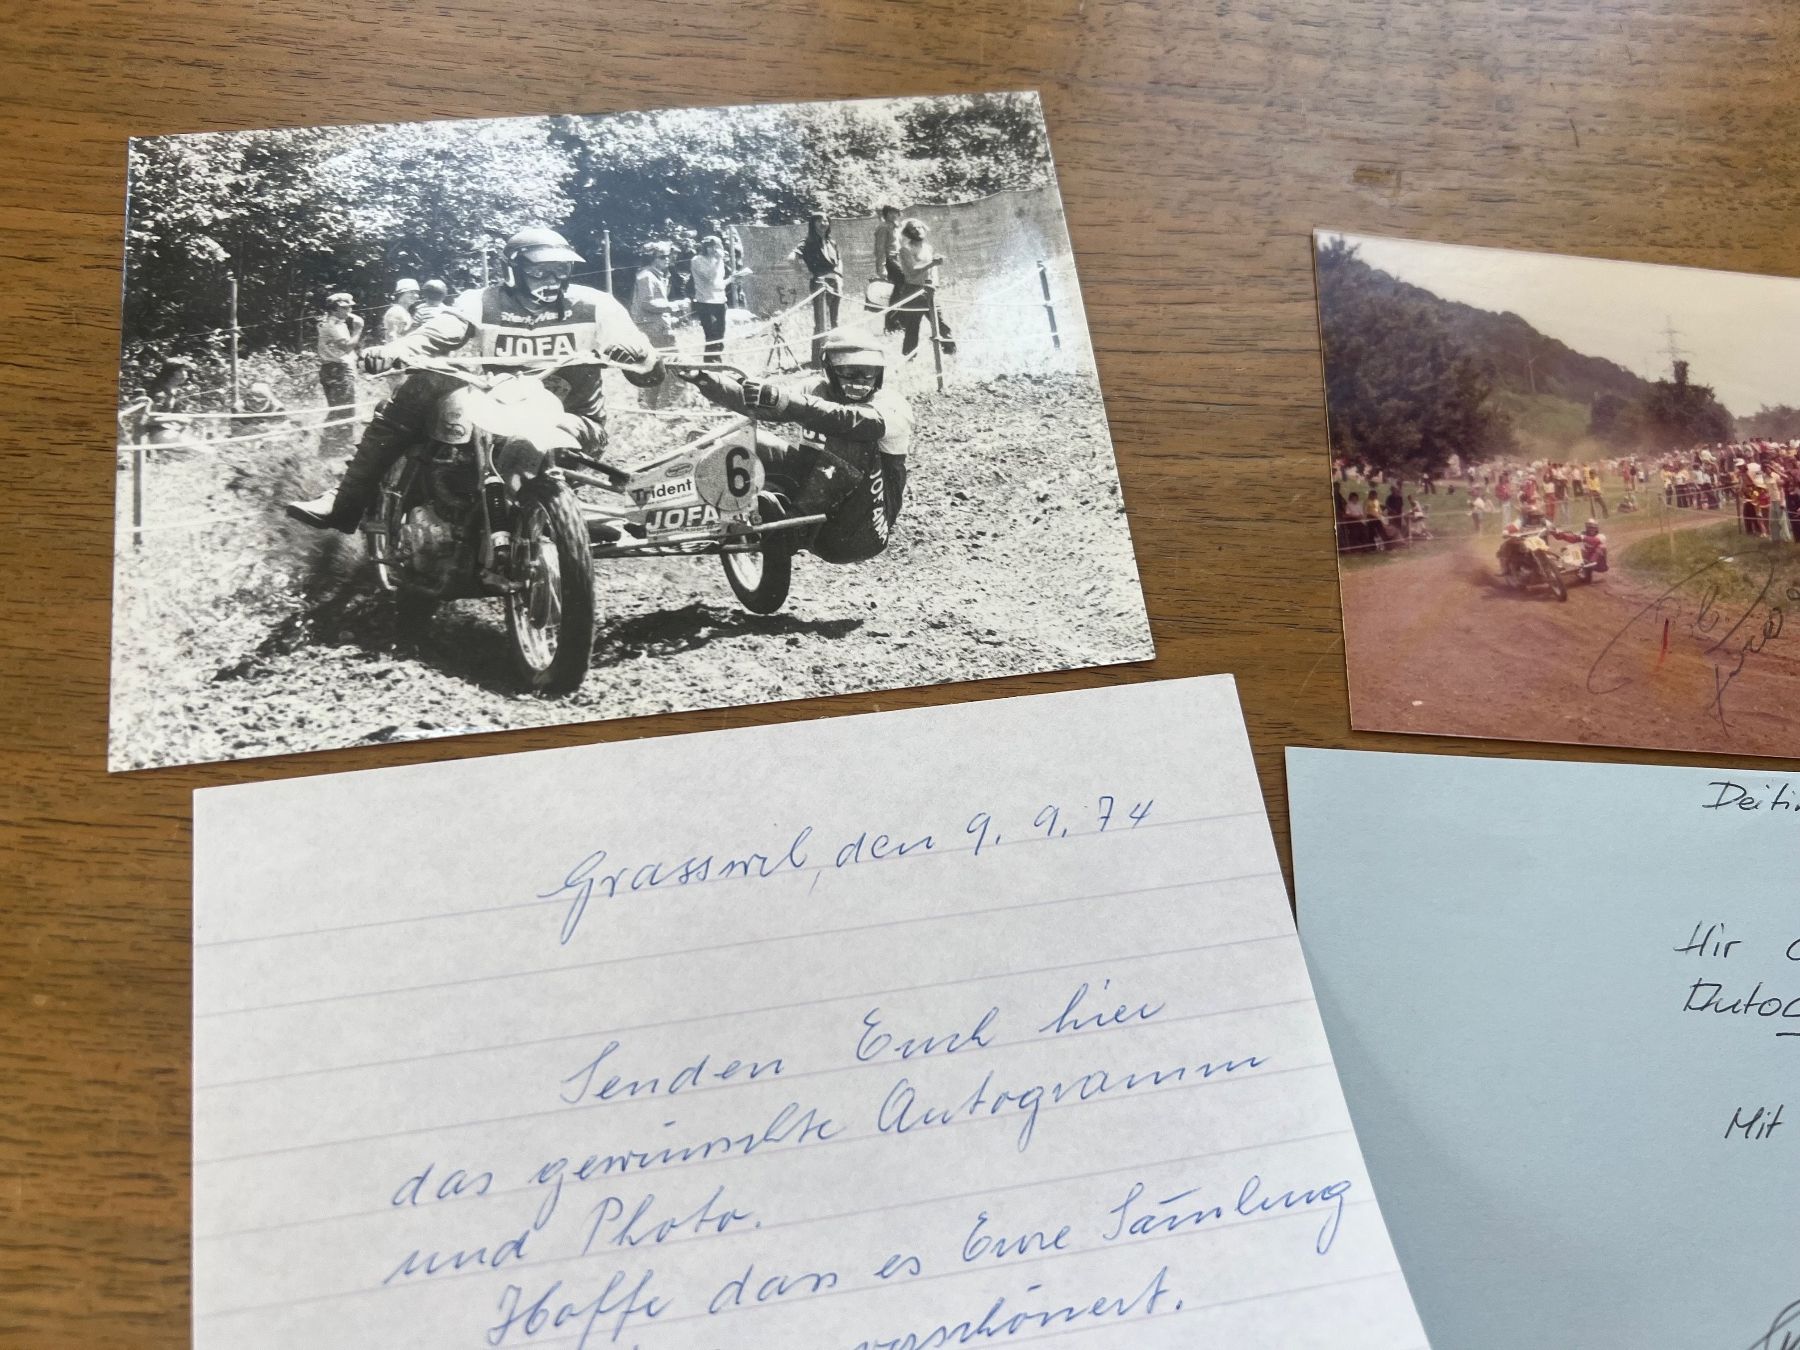 JOFA
6
Trident
JOFA
JOFA
Grasswil, den 9. 9. 74
Senden Euch hier
das gewünschte Autogramm
und Photo.
Hoffe dass es Eure Sämlung
verschönert.
Hir
Mit